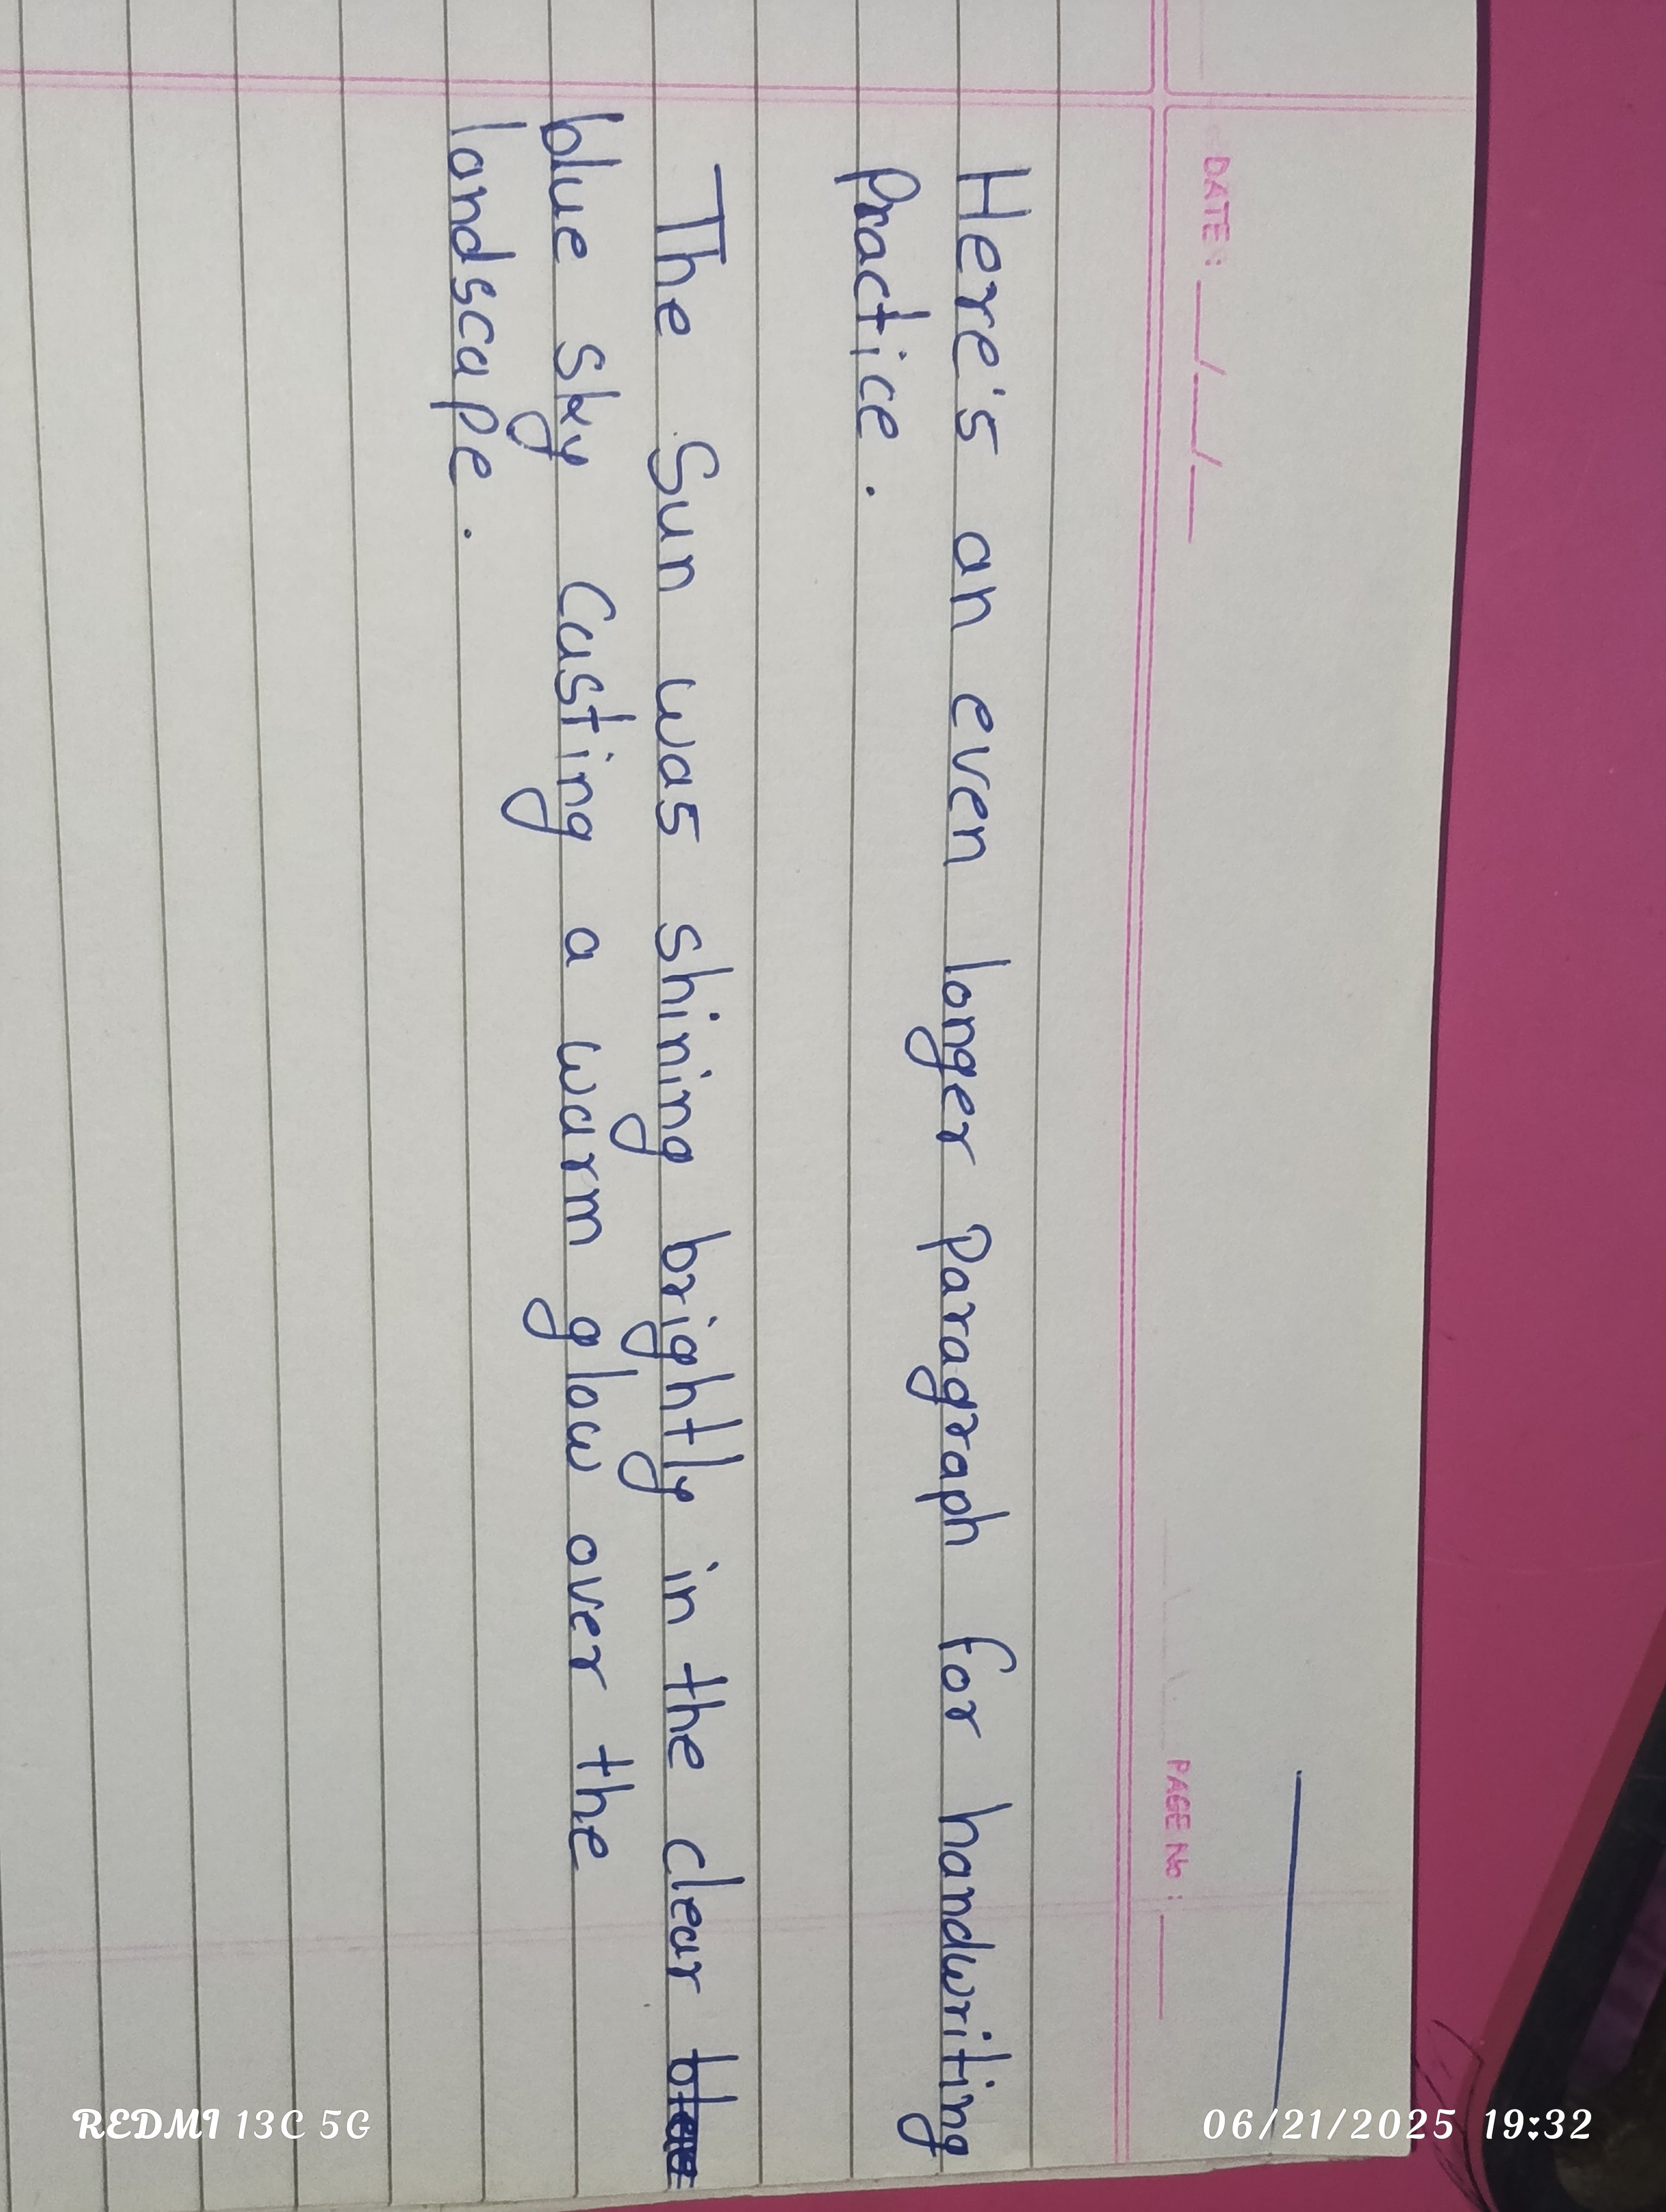 DATE: __/__/__
PAGE No: ___
Here's an even longer paragraph for handwriting
Practice.
The Sun was shining brightly in the clear
blue sky Casting a warm glow over the
landscape.
REDMI 13C 5G
06/21/2025 19:32